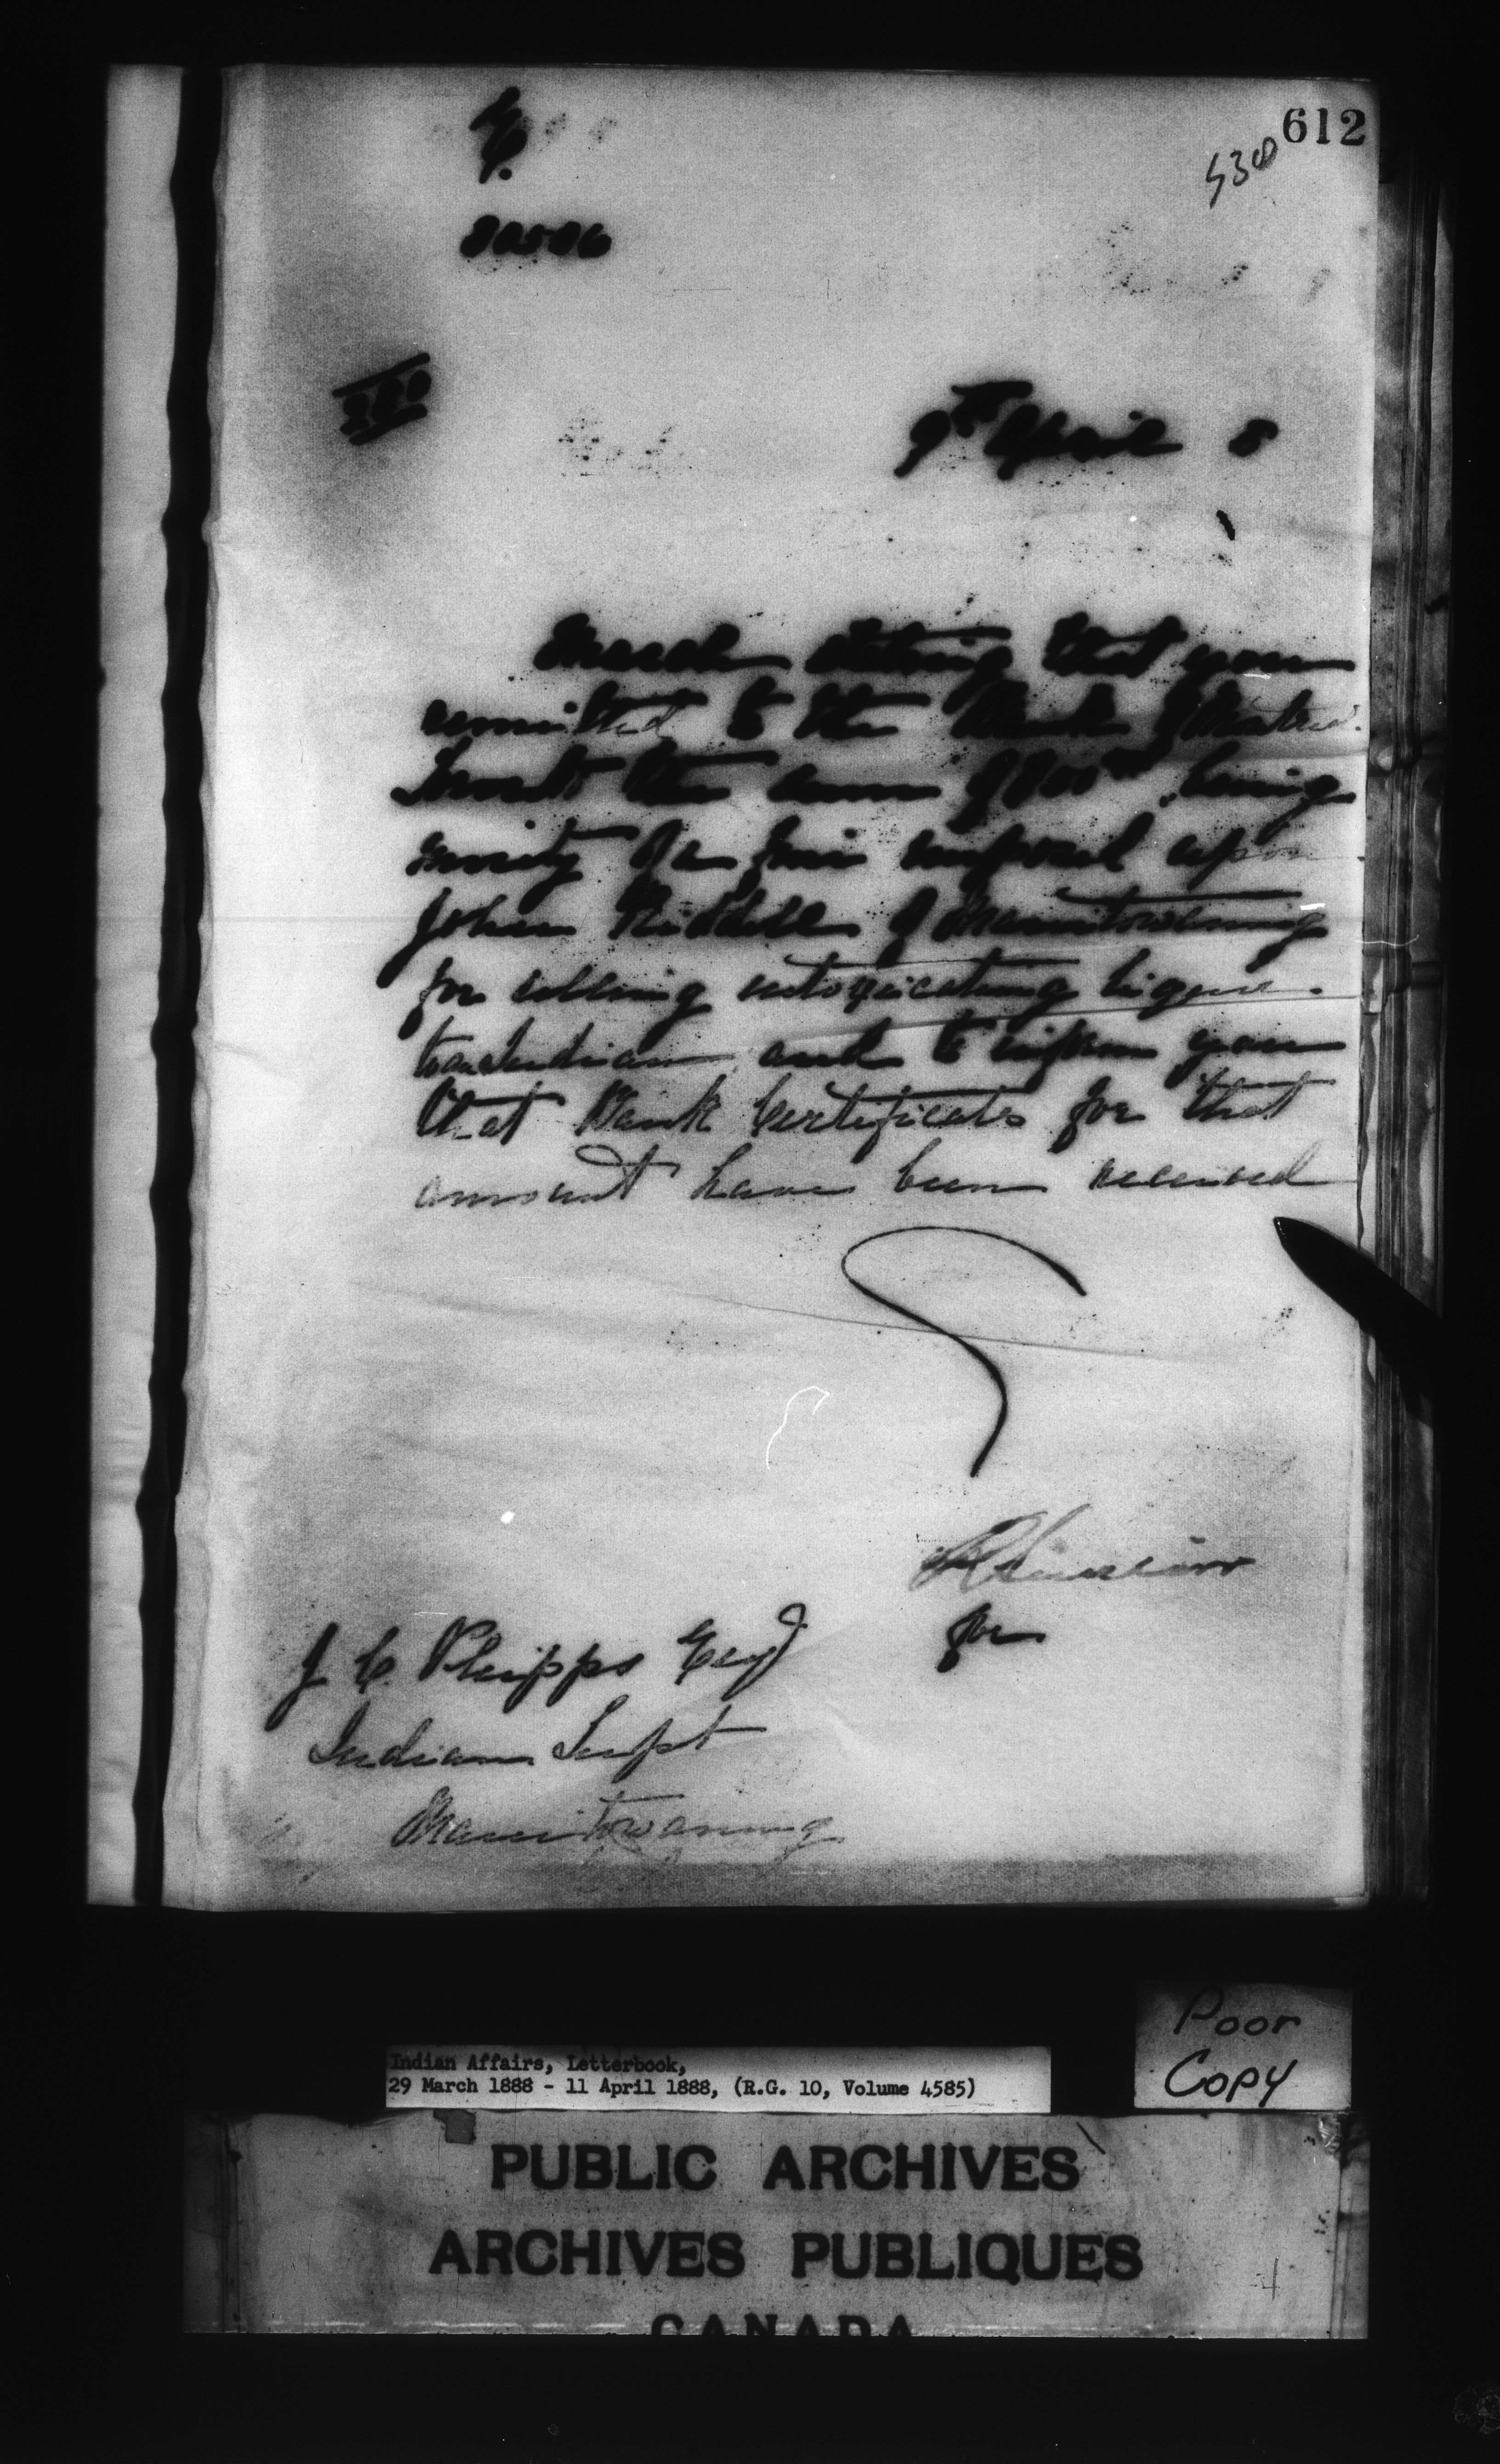 612
530
E.
9th April 8
March stating that you
remitted to the Bank of Montreal
the sum of being
moiety of a fine imposed upon
John Riddell of Manitowaning
for selling intoxicating liquor
to an Indian and to inform you
that Bank Certificate for that
amount have been received
for
J C. Phipps Esq
Indian Supt
Manitowaning
Poor
Copy
Indian Affairs, Letterbook,
29 March 1888 - 11 April 1888, (R.G. 10, Volume 4585)
PUBLIC ARCHIVES
ARCHIVES PUBLIQUES
CANADA